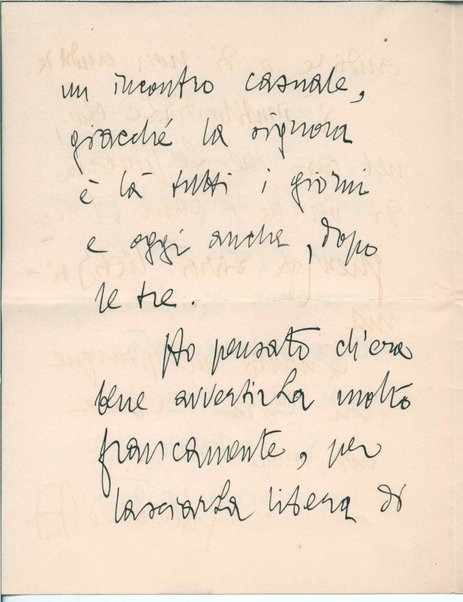 un incontro casuale,
giacché la signora
è là tutti i giorni
e oggi anche, dopo
le tre.
Ho pensato ch'era
bene avvertirLa molto
francamente, per
lasciarLa libera di